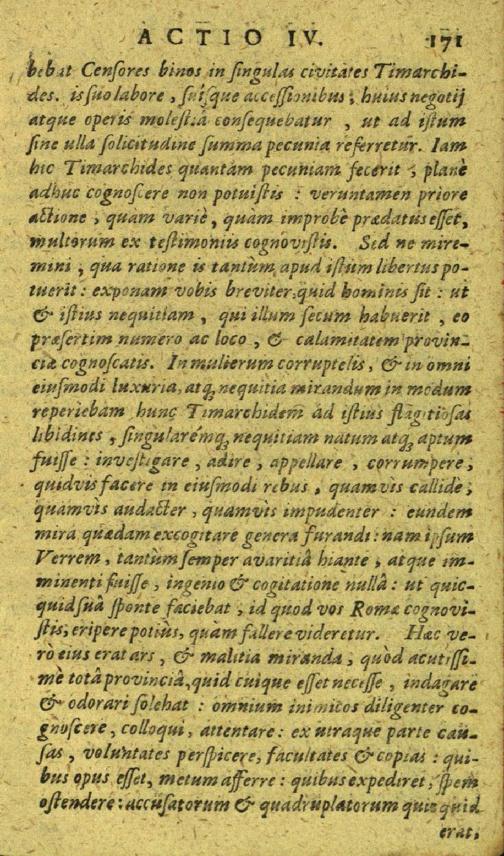 ACTIO IV. 171
bebat Censores binos in singulas civitates Timarchi-
des. is suo labore, suisque accessionibus, huius negotij
atque operis molestiâ consequebatur, ut ad istum
sine ulla solicitudine summa pecuniæ referretur. Iam
hic Timarchides quantam pecuniam fecerit, planè
adhuc cognoscere non potuistis : veruntamen priore
actione, quam variè, quam improbè prædatus esset,
multorum ex testimoniis cognovistis. Sed ne mire-
mini, qua ratione is tantum apud istum libertus po-
tuerit : exponam vobis breviter, quid hominis sit : ut
& istius nequitiam, qui illum secum habuerit, eo
præsertim numero ac loco, & calamitatem provin-
ciæ cognoscatis. In mulierum corruptelis, & in omni
eiusmodi luxuria, atq; nequitia mirandum in modum
reperiebam hunc Timarchidem ad istius flagitiosas
libidines, singularémq; nequitiam natum atq; aptum
fuisse : investigare, adire, appellare, corrumpere,
quidvis facere in eiusmodi rebus, quamvis callidè,
quamvis audacter, quamvis impudenter : eundem
mira quædam excogitare genera furandi : nam ipsum
Verrem, tantùm semper avaritiâ hiante, atque im-
minenti fuisse, ingenio & cogitatione nullâ : ut quic-
quid suâ sponte faciebat, id quod vos Romæ cognovi-
stis, eripere potiùs, quàm fallere videretur. Hæc ve-
rò eius erat ars, & malitia miranda, quòd acutissi-
mè totâ provinciâ, quid cuique esset necesse, indagare
& odorari solebat : omnium inimicos diligenter co-
gnoscere, colloqui, attentare : ex utraque parte cau-
sas, voluntates perspicere, facultates & copias : qui-
bus opus esset, metum afferre : quibus expediret, spem
ostendere : accusatorum & quadruplatorum quicquid
erat,